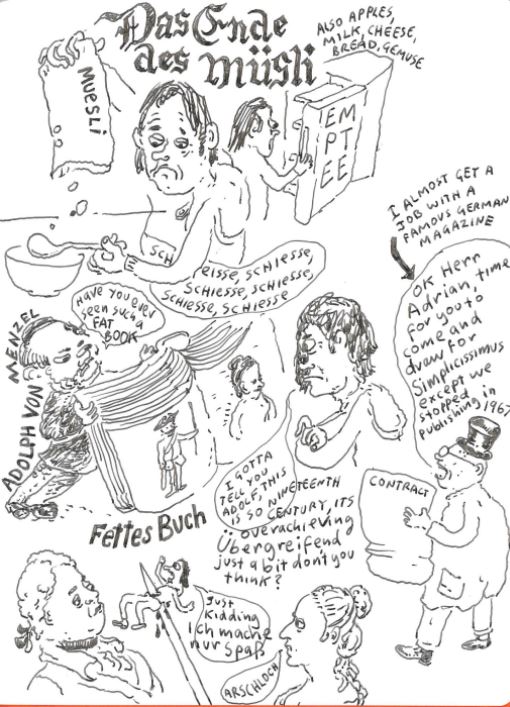 Das Ende
des müsli
ALSO APPLES,
MILK, CHEESE,
BREAD, GEMUSE
MUESLI
EM
PT
EE
SCH
EISSE, SCHIESSE,
SCHIESSE, SCHIESSE,
SCHIESSE, SCHIESSE
I ALMOST GET A
JOB WITH A
FAMOUS GERMAN
MAGAZINE
OK Herr
Adrian, time
for you to
come and
draw for
Simplicissimus
except we
stopped
publishing in
1967
HAVE YOU EVER
seen such a
FAT
BOOK
ADOLPH VON MENZEL
Fettes Buch
I GOTTA
TELL YOU
ADOLF, THIS
IS SO NINETEENTH
CENTURY, ITS
overachieving
Übergreifend
just a bit dont you
think?
CONTRACT
Just
Kidding
Ich mache
nur Spaß
ARSCHLOCH